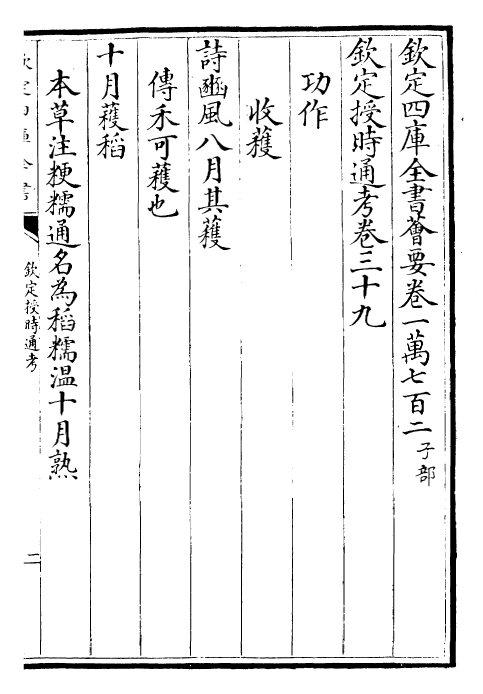 欽定四庫全書薈要卷一萬七百二 子部
欽定授時通考卷三十九
功作
收穫
詩豳風八月其穫
傳禾可穫也
十月穫稻
本草注粳糯通名為稻糯温十月熟
欽定四庫全書
欽定授時通考
二